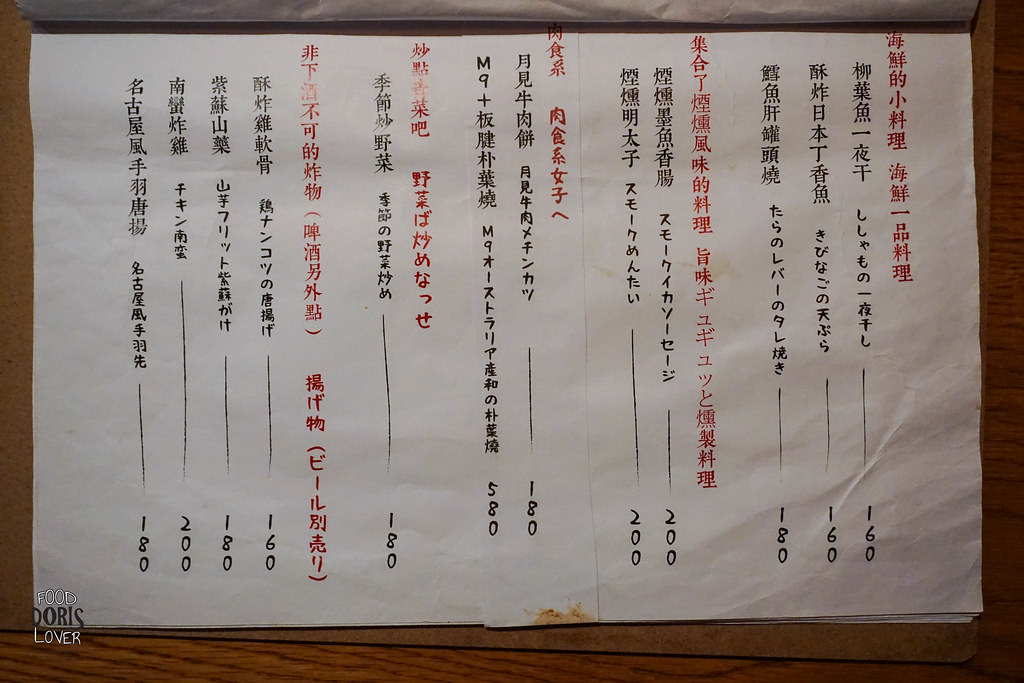 海鮮的小料理 海鮮一品料理
柳葉魚一夜干 ししゃもの一夜干し 160
酥炸日本丁香魚 きびなごの天ぷら 160
鱈魚肝罐頭燒 たらのレバーのタレ焼き 180
集合了煙燻風味的料理 旨味ギュギュッと燻製料理
煙燻墨魚香腸 スモークイカソーセージ 200
煙燻明太子 スモークめんたい 200
肉食系 肉食系女子へ
月見牛肉餅 月見牛肉メチンカツ 180
M9+板腱朴葉燒 M9オーストラリア産和の朴葉燒 580
炒點香菜吧 野菜ば炒めなっせ
季節炒野菜 季節の野菜炒め 180
非下酒不可的炸物（啤酒另外點） 揚げ物（ビール別売り）
酥炸雞軟骨 鶏ナンコツの唐揚げ 160
紫蘇山藥 山芋フリット紫蘇がけ 180
南蠻炸雞 チキン南蛮 200
名古屋風手羽唐揚 名古屋風手羽先 180
FOOD
DORIS
LOVER